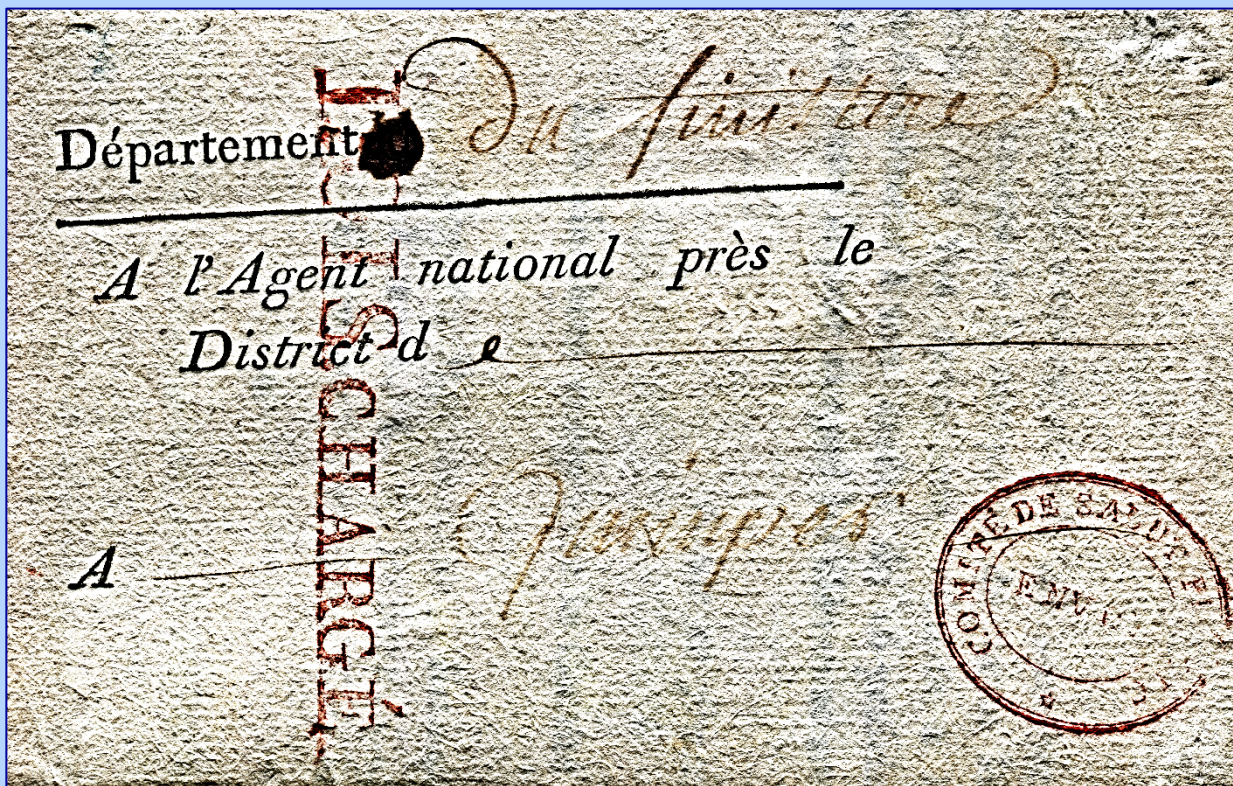 Département du finistere
A l'Agent national près le
District d e
A quimper
CHARGÉ
COMITÉ DE SALUT